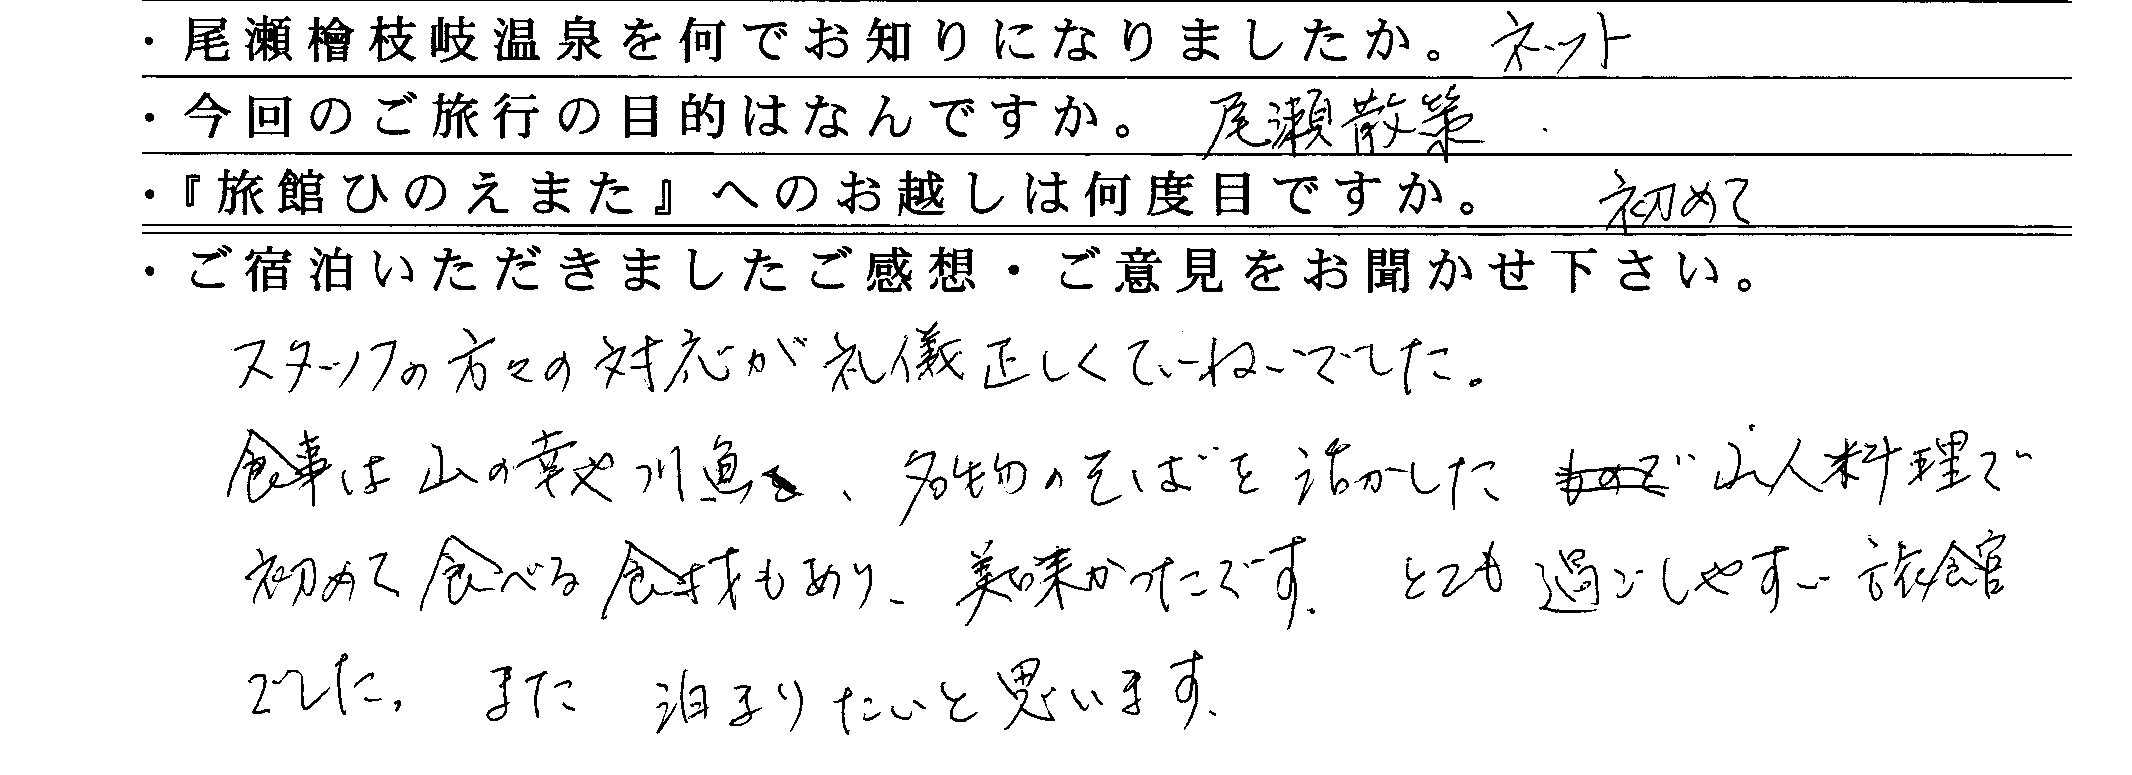 ・尾瀬檜枝岐温泉を何でお知りになりましたか。 ネット
・今回のご旅行の目的はなんですか。 尾瀬散策
・『旅館ひのえまた』へのお越しは何度目ですか。 初めて
・ご宿泊いただきましたご感想・ご意見をお聞かせ下さい。
スタッフの方々の対応が礼儀正しくてぃーねいでした。
食事は山の幸や川魚、名物のそばを活かした山人料理で
初めて食べる食材もあり、美味かったです。とても過ごしやすい旅館
でした。また泊まりたいと思います。